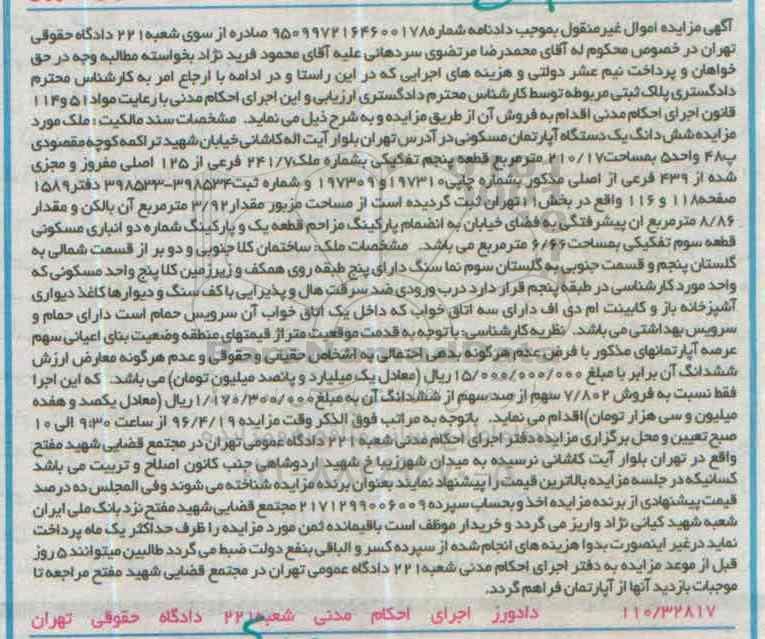 آگهی مزایده اموال غیرمنقول بموجب دادنامه شماره ۹۵۰۹۹۷۲۱۶۴۶۰۰۱۷۸ صادره از سوی شعبه ۲۲۱ دادگاه حقوقی
تهران در خصوص محکوم له آقای محمدرضا مرتضوی سردهائی علیه آقای محمود فرید نژاد بخواسته مطالبه وجه در حق
خواهان و پرداخت نیم عشر دولتی و هزینه های اجرایی که در این راستا و در ادامه با ارجاع امر به کارشناس محترم
دادگستری پلاک ثبتی مربوطه توسط کارشناس محترم دادگستری ارزیابی و این اجرای احکام مدنی با رعایت مواد ۵۱ و ۱۱۴
قانون اجرای احکام مدنی اقدام به فروش آن از طریق مزایده و به شرح ذیل می نماید. مشخصات سند مالکیت: ملک مورد
مزایده شش دانگ یک دستگاه آپارتمان مسکونی در آدرس تهران بلوار آیت اله کاشانی خیابان شهید تراکمه کوچه مقصودی
پ۴۸ واحد۵ بمساحت ۲۱۰/۱۷ مترمربع قطعه پنجم تفکیکی بشماره ملک ۲۴۱/۷ فرعی از ۱۲۵ اصلی مفروز و مجزی
شده از ۴۳۹ فرعی از اصلی مذکور بشماره چاپی ۱۹۷۳۱۰ و ۱۹۷۳۰۹ و شماره ثبت ۳۹۸۵۳۴-۳۹۸۵۳۳ دفتر ۱۵۸۹
صفحه ۱۱۸ و ۱۱۶ واقع در بخش ۱۱ تهران ثبت گردیده است از مساحت مزبور مقدار ۳/۹۲ مترمربع آن بالکن و مقدار
۸/۸۶ مترمربع ان پیشرفتگی به فضای خیابان به انضمام پارکینگ مزاحم قطعه یک و پارکینگ شماره دو انباری مسکونی
قطعه سوم تفکیکی بمساحت ۶/۶۶ مترمربع می باشد. مشخصات ملک: ساختمان کلا جنوبی و دو بر از قسمت شمالی به
گلستان پنجم و قسمت جنوبی به گلستان سوم نما سنگ دارای پنج طبقه روی همکف و زیرزمین کلا پنج واحد مسکونی که
واحد مورد کارشناسی در طبقه پنجم قرار دارد درب ورودی ضد سرقت هال و پذیرایی با کف سنگ و دیوارها کاغذ دیواری
آشپزخانه باز و کابینت ام دی اف دارای سه اتاق خواب که داخل یک اتاق خواب آن سرویس حمام است دارای حمام و
سرویس بهداشتی می باشد. نظریه کارشناسی: با توجه به قدمت موقعیت متراژ قیمتهای منطقه وضعیت بنای اعیانی سهم
عرصه آپارتمانهای مذکور با فرض عدم هرگونه بدهی احتمالی به اشخاص حقیقی و حقوقی و عدم هرگونه معارض ارزش
ششدانگ آن برابر با مبلغ ۱۵/۰۰۰/۰۰۰/۰۰۰ ریال (معادل یک میلیارد و پانصد میلیون تومان) می باشد. که این اجرا
فقط نسبت به فروش ۷/۸۰۲ سهم از صد سهم از ششدانگ آن به مبلغ ۱/۱۷۰/۳۰۰/۰۰۰ ریال (معادل یکصد و هفده
میلیون و سی هزار تومان) اقدام می نماید. باتوجه به مراتب فوق الذکر وقت مزایده ۹۶/۴/۱۹ از ساعت ۹:۳۰ الی ۱۰
صبح تعیین و محل برگزاری مزایده دفتر اجرای احکام مدنی شعبه ۲۲۱ دادگاه عمومی تهران در مجتمع قضایی شهید مفتح
واقع در تهران بلوار آیت کاشانی نرسیده به میدان شهرزیبا خ شهید اردوشاهی جنب کانون اصلاح و تربیت می باشد
کسانیکه در جلسه مزایده بالاترین قیمت را پیشنهاد نمایند بعنوان برنده مزایده شناخته می شوند وفی المجلس ده درصد
قیمت پیشنهادی از برنده مزایده اخذ و بحساب سپرده ۲۱۷۱۲۹۹۰۰۶۰۰۹ مجتمع قضایی شهید مفتح نزد بانک ملی ایران
شعبه شهید کیانی نژاد واریز می گردد و خریدار موظف است باقیمانده ثمن مورد مزایده را ظرف حداکثر یک ماه پرداخت
نماید در غیر اینصورت بدوا هزینه های انجام شده از سپرده کسر و الباقی بنفع دولت ضبط می گردد طالبین میتوانند ۵ روز
قبل از موعد مزایده به دفتر اجرای احکام مدنی شعبه ۲۲۱ دادگاه عمومی تهران در مجتمع قضایی شهید مفتح مراجعه تا
موجبات بازدید آنها از آپارتمان فراهم گردد.
۱۱۰/۳۲۸۱۷ دادورز اجرای احکام مدنی شعبه ۲۲۱ دادگاه حقوقی تهران